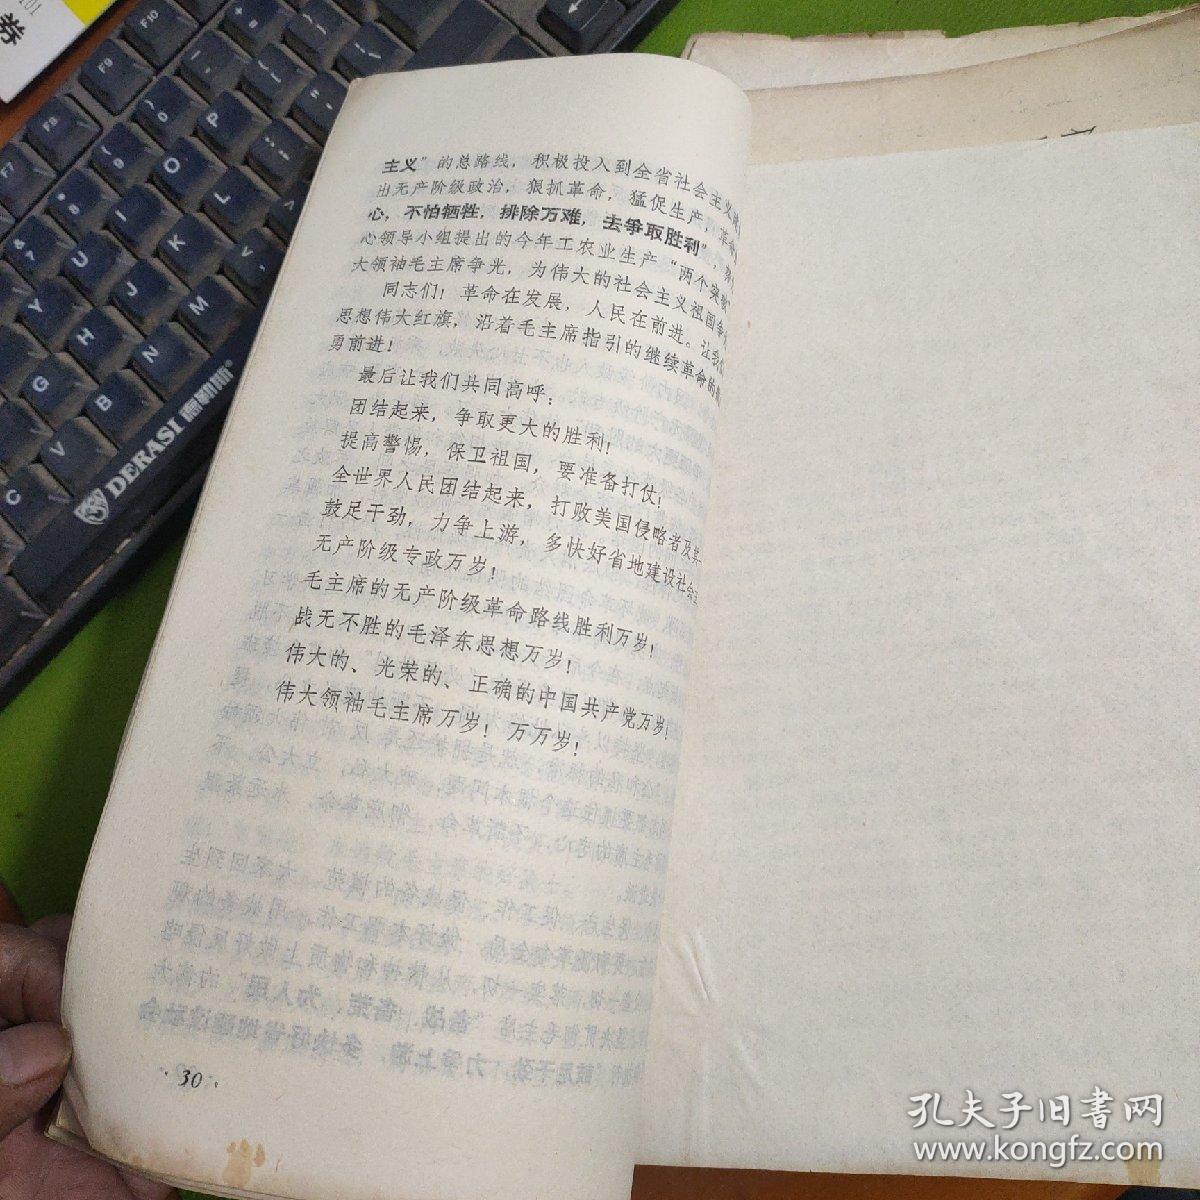 主义”的总路线，积极投入到全省社会主义
出无产阶级政治，狠抓革命，猛促生产，革命
心，不怕牺牲，排除万难，去争取胜利”，
心领导小组提出的今年工农业生产“两个突破”
大领袖毛主席争光，为伟大的社会主义祖国争
同志们！革命在发展，人民在前进。让我们
思想伟大红旗，沿着毛主席指引的继续革命的
勇前进！
最后让我们共同高呼：
团结起来，争取更大的胜利！
提高警惕，保卫祖国，要准备打仗！
全世界人民团结起来，打败美国侵略者及其
鼓足干劲，力争上游，多快好省地建设社会主
无产阶级专政万岁！
毛主席的无产阶级革命路线胜利万岁！
战无不胜的毛泽东思想万岁！
伟大的、光荣的、正确的中国共产党万岁！
伟大领袖毛主席万岁！万万岁！
·30·
DERASI 德利斯®
券
101
F10
F9
F8
F7
P
O
I
U
Y
L
K
J
H
G
M
N
B
V
C
孔夫子旧书网
www.kongfz.com